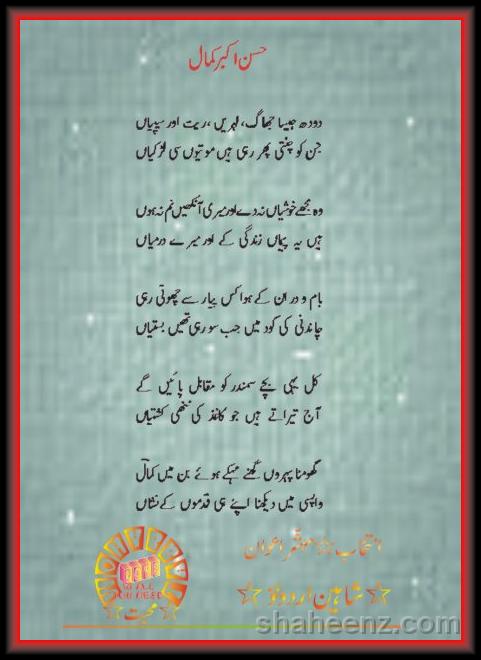 حسن اکبر کمال
دودھ جیسا جھاگ، لہریں، ریت اور سیپیاں
جن کو چنتی پھر رہی ہیں موتیوں سی لڑکیاں
وہ مجھے خوشیاں نہ دے اور میری آنکھیں نم نہ ہوں
ہیں یہ پیماں زندگی کے اور میرے درمیاں
بام و در ان کے ہوا کس پیار سے چھوتی رہی
چاندنی کی گود میں جب سو رہی تھیں بستیاں
کل یہی بچے سمندر کو مقابل پائیں گے
آج تیراتے ہیں جو کاغذ کی ننھی کشتیاں
گھومنا پہروں گھنے مہکے ہوئے بن میں کمالؔ
واپسی میں دیکھنا اپنے ہی قدموں کے نشاں
انتخاب اعوان
شاہین اردو
محبت
shaheenz.com